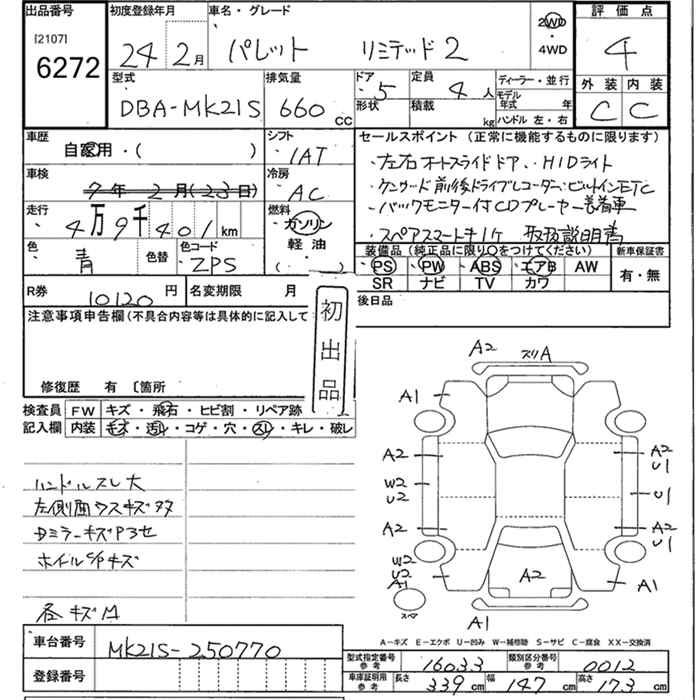 出品番号
[2107]
6272
初度登録年月
24年2月
車名・グレード
パレット リミテッド2
2WD
・
4WD
評価点
4
外装 内装
C C
型式
DBA-MK21S
排気量
660 CC
ドア 形状
5
定員 積載
4人
kg
ディーラー・並行
モデル年式 年
ハンドル 左・右
車歴
自家用・( )
シフト
IAT
車検
7年2月(23日)
冷房
AC
走行
4万9千401km
燃料
ガソリン
軽油
( )
色
青
色替
色コード
ZPS
セールスポイント(正常に機能するものに限ります)
・左右オートスライドドア、HIDライト
・ケンウッド前後ドライブレコーダー・ビルトインETC
・バックモニター付CDプレーヤー装着車
・スペアスマートキー1ケ 取扱説明書
装備品(純正品に限り〇をつけてください)
PS PW ABS エアB AW
SR ナビ TV カワ
新車保証書
有・無
R券
10120円
名変期限 月
後日品
注意事項申告欄(不具合内容等は具体的に記入して
修復歴 有 〔箇所
初出品
検査員記入欄
FW キズ・飛石・ヒビ割・リペア跡
内装 キズ・汚れ・コゲ・穴・スレ・キレ・破レ
ハンドルスレ大
左側面ウスキズ多々
Dミラーキズ
ホイールC/Pキズ
各キズ
A2 スリA
A1
A2
W2
U2
A2
W2
U2
A1
スペア
A2
A1
A2
U1
U1
A2
U1
A1
A-キズ E-エクボ U-凹み W-補修跡 S-サビ C-腐食 XX-交換済
車台番号
MK21S-250770
登録番号
型式指定番号 参考
16033
類別区分番号 参考
0012
車庫証明用 参考
長さ 339cm 幅 147cm 高さ 173cm